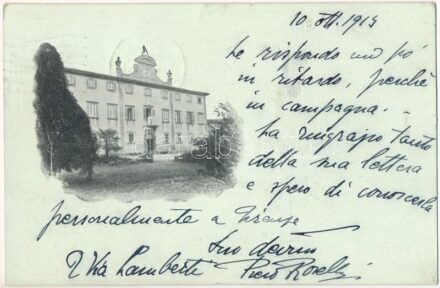 10 ott. 1915
Le rispondo un pò
in ritardo, perchè
in campagna.
La ringrazio tanto
della sua lettera
e spero di conoscerla
personalmente a Firenze
Suo
2 Via Lamberti